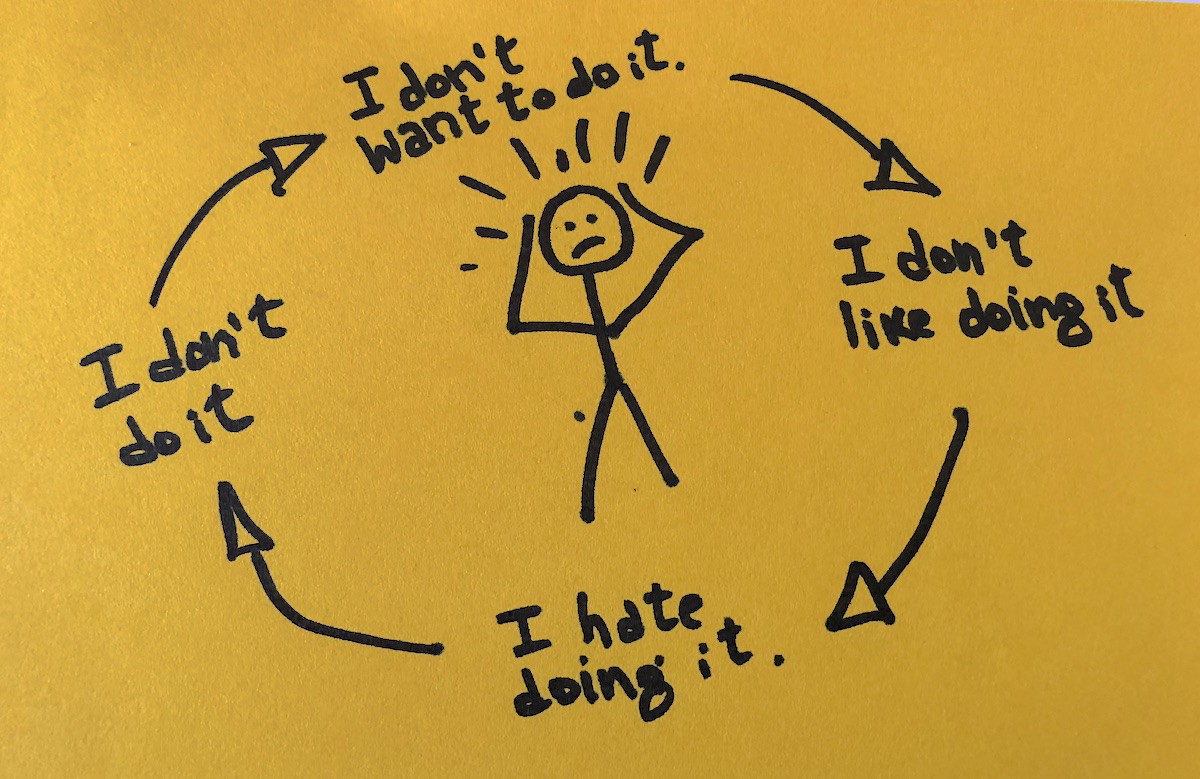 I don't
want to do it.
I don't
like doing it
I hate
doing it.
I don't
do it